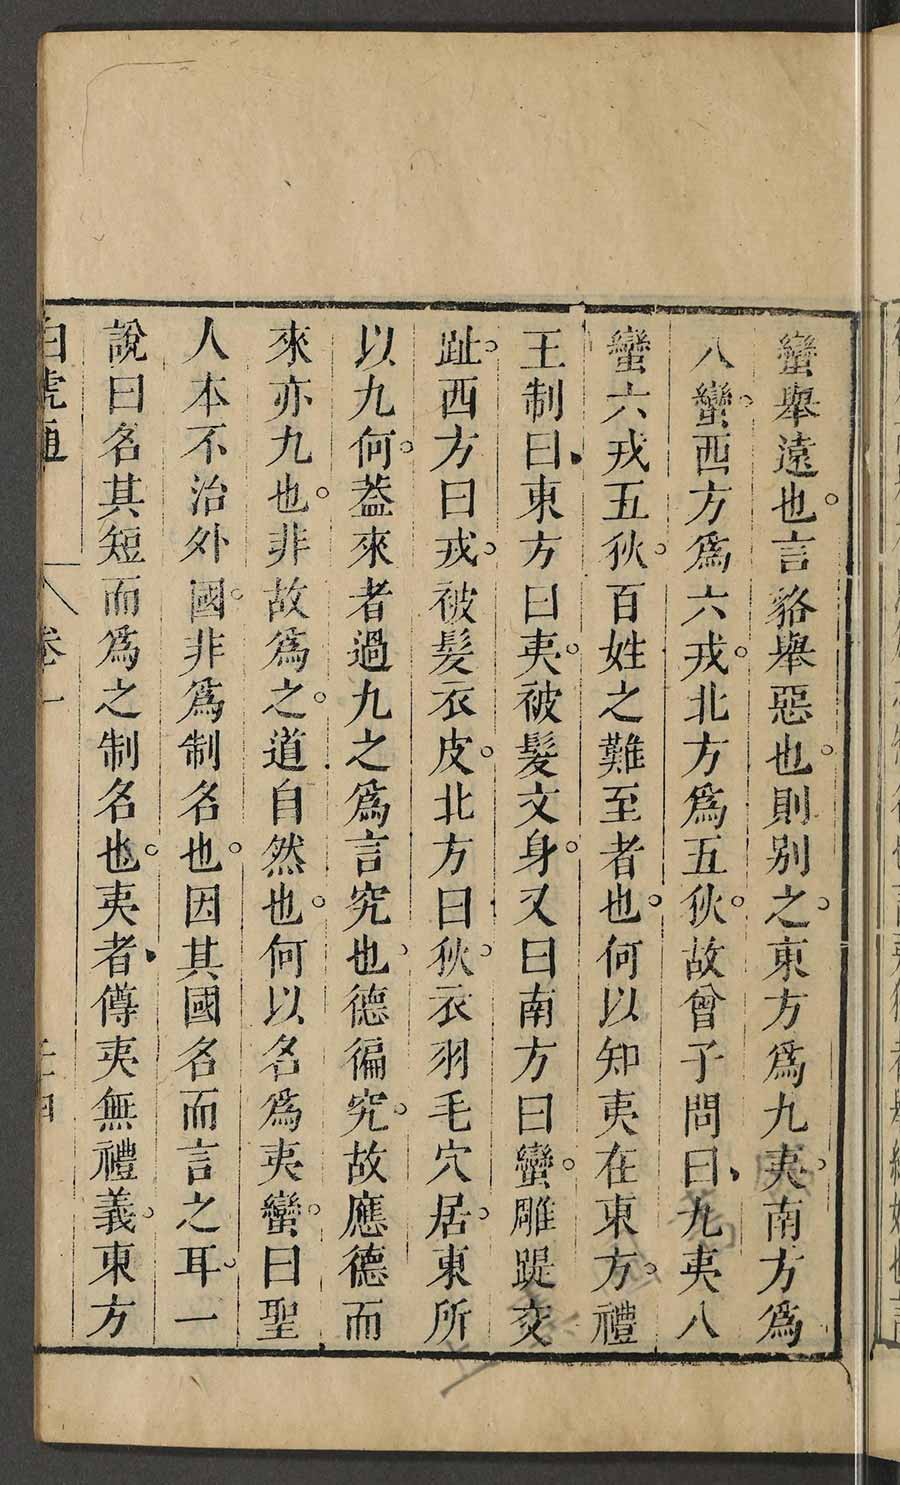 蠻舉遠也言貉舉惡也則别之東方爲九夷南方爲
八蠻西方爲六戎北方爲五狄故曾子問曰九夷八
蠻六戎五狄百姓之難至者也何以知夷在東方禮
王制曰東方曰夷被髮文身又曰南方曰蠻雕踶交
趾西方曰戎被髮衣皮北方曰狄衣羽毛穴居東所
以九何葢來者過九之爲言究也德徧究故應德而
來亦九也非故爲之道自然也何以名爲夷蠻曰聖
人本不治外國非爲制名也因其國名而言之耳一
說曰名其短而爲之制名也夷者傅夷無禮義東方
白虎通 卷一